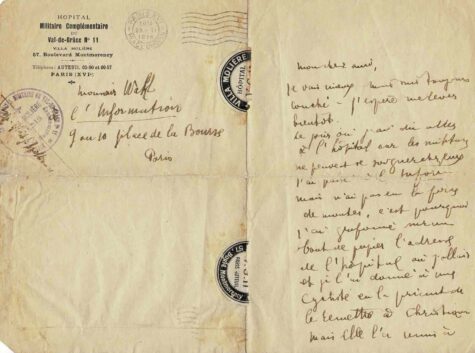 HÔPITAL
Militaire Complémentaire
DU
Val-de-Grâce N° 11
VILLA MOLIÈRE
57, Boulevard Montmorency
Téléphones : AUTEUIL
PARIS (XVIe)
PARIS
Monsieur
L'Information
9 ou 10 place de la Bourse
Paris
VILLA MOLIÈRE
HÔPITAL
mon cher ami,
Je vais mieux, mais suis toujours
couché - J'espère me lever
bientôt.
tu sais que j'ai dû aller
à l'hôpital car les
ne peuvent se soigner chez eux
J'ai passé à l'Inform
mais n'ai pas eu la force
de monter, c'est pourquoi
j'ai griffonné sur un
bout de papier l'adresse
de l'hôpital où j'allais
et je l'ai donné à un
cycliste en le priant de
le remettre à
mais Elle l'a remis à